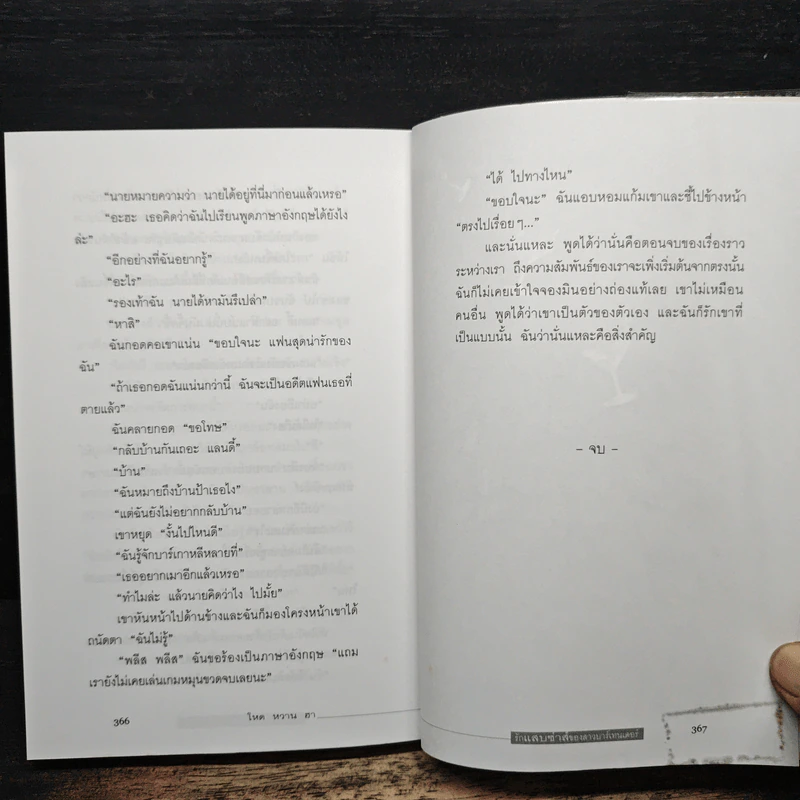 “นายหมายความว่า นายได้อยู่ที่นี่มาก่อนแล้วเหรอ”
“อะฮะ เธอคิดว่าฉันไปเรียนพูดภาษาอังกฤษได้ยังไง
ล่ะ”
“อีกอย่างที่ฉันอยากรู้”
“อะไร”
“รองเท้าฉัน นายได้หามันรึเปล่า”
“หาสิ”
ฉันกอดคอเขาแน่น “ขอบใจนะ แฟนสุดน่ารักของ
ฉัน”
“ถ้าเธอกอดฉันแน่นกว่านี้ ฉันจะเป็นอดีตแฟนเธอที่
ตายแล้ว”
ฉันคลายกอด “ขอโทษ”
“กลับบ้านกันเถอะ แลนดี้”
“บ้าน”
“ฉันหมายถึงบ้านป้าเธอไง”
“แต่ฉันยังไม่อยากกลับบ้าน”
เขาหยุด “งั้นไปไหนดี”
“ฉันรู้จักบาร์เกาหลีหลายที่”
“เธออยากเมาอีกแล้วเหรอ”
“ทำไมล่ะ แล้วนายคิดว่าไง ไปมั้ย”
เขาหันหน้าไปด้านข้างและฉันก็มองโครงหน้าเขาได้
ถนัดตา “ฉันไม่รู้”
“พลีส พลีส” ฉันขอร้องเป็นภาษาอังกฤษ “แถม
เรายังไม่เคยเล่นเกมหมุนขวดจบเลยนะ”
366
โหด หวาน ฮา
“ได้ ไปทางไหน”
“ขอบใจนะ” ฉันแอบหอมแก้มเขาและชี้ไปข้างหน้า
“ตรงไปเรื่อยๆ...”
และนั่นแหละ พูดได้ว่านั่นคือตอนจบของเรื่องราว
ระหว่างเรา ถึงความสัมพันธ์ของเราจะเพิ่งเริ่มต้นจากตรงนั้น
ฉันก็ไม่เคยเข้าใจจองมินอย่างถ่องแท้เลย เขาไม่เหมือน
คนอื่น พูดได้ว่าเขาเป็นตัวของตัวเอง และฉันก็รักเขาที่
เป็นแบบนั้น ฉันว่านั่นแหละคือสิ่งสำคัญ
- จบ -
รักแสบซ่าส์ของสาวบาร์เทนเดอร์
367